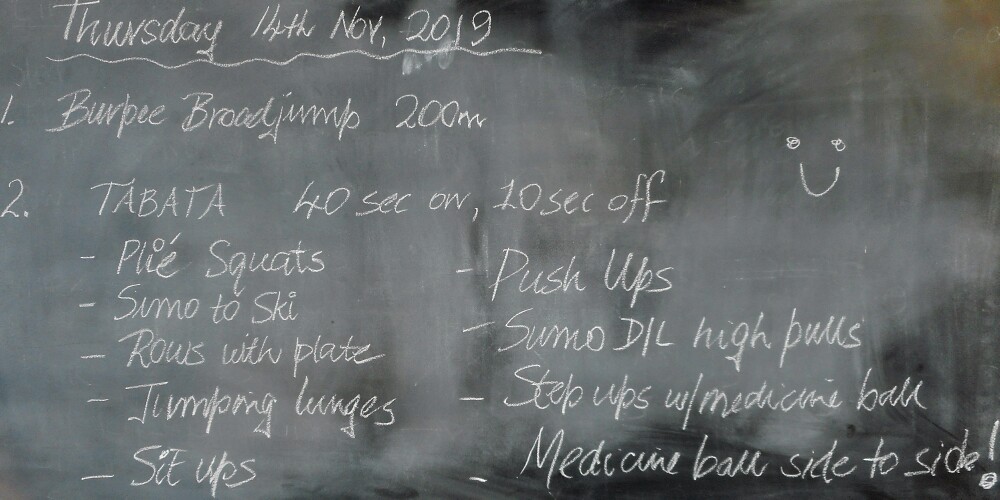 Thursday 14th Nov, 2019
1. Burpee Broadjump 200m
2. TABATA 40 sec on, 10 sec off
- Plié Squats
- Sumo to Ski
- Rows with plate
- Jumping lunges
- Sit ups
- Push Ups
- Sumo D/L high pulls
- Step ups w/medicine ball
- Medicine ball side to side!